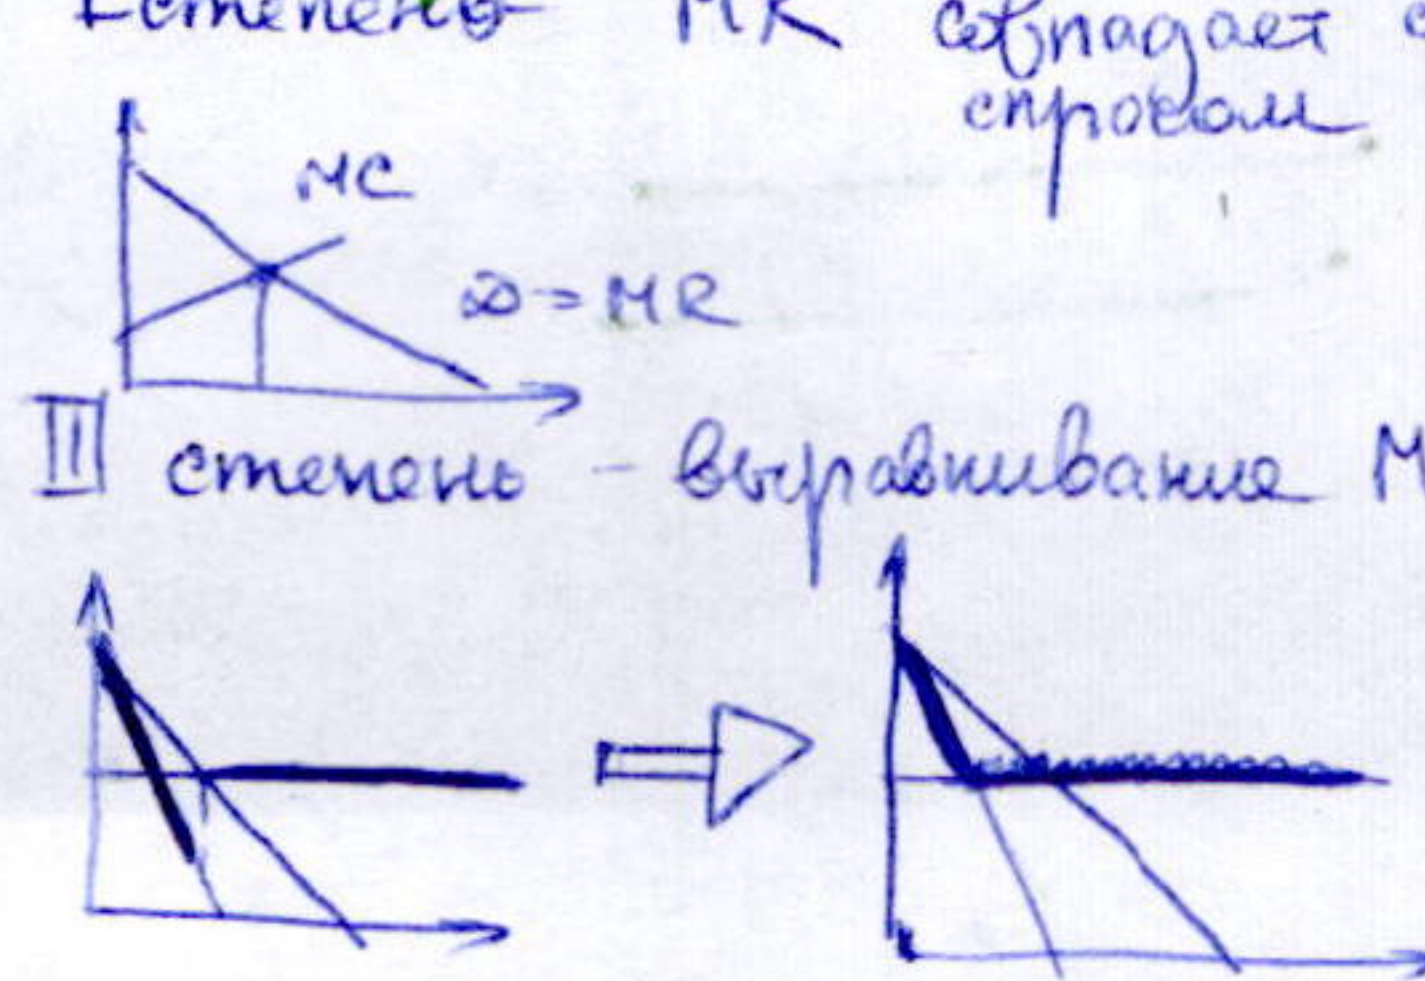 I степень MR совпадает с
спросом
MC
D = MR
III степень - выравнивание M